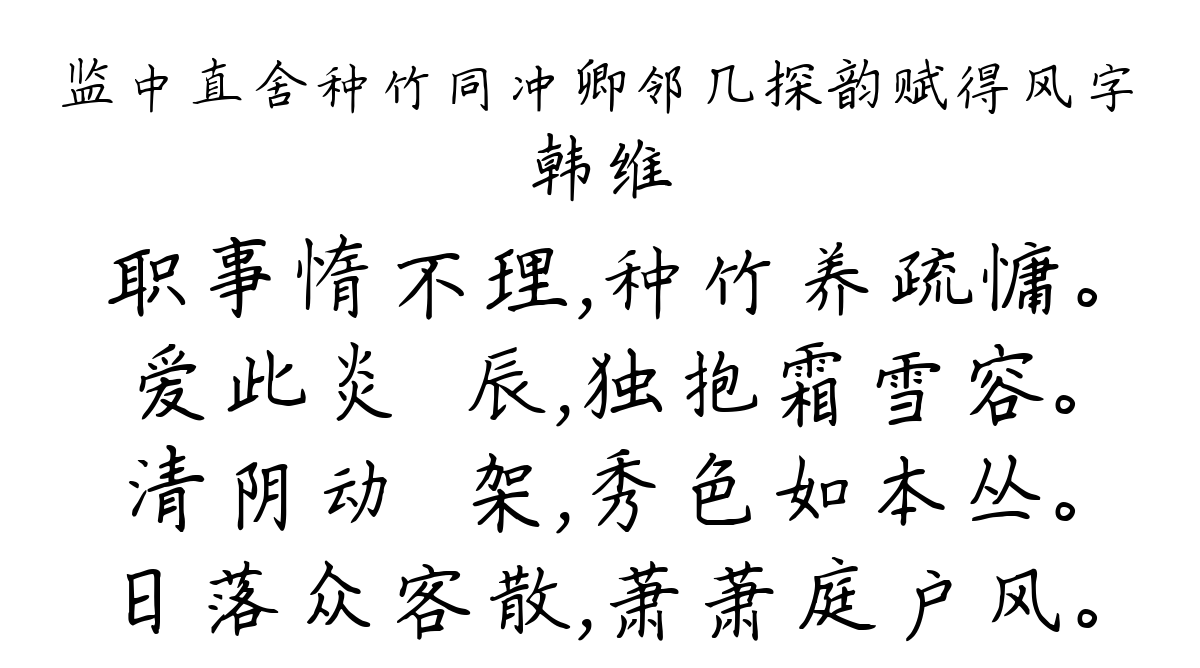 监中直舍种竹同冲卿邻几探韵赋得风字
韩维
职事惰不理,种竹养疏慵。
爱此炎 辰,独抱霜雪容。
清阴动 架,秀色如本丛。
日落众客散,萧萧庭户风。